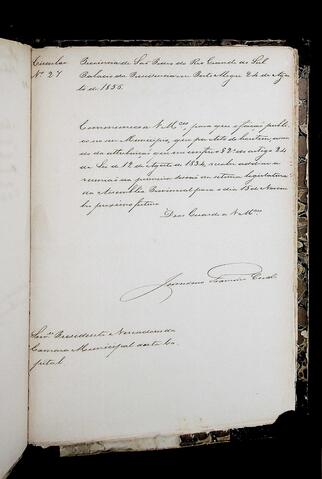 Circular Provincia de São Pedro do Rio Grande do Sul
Nº 27 Palacio da Presidencia em Porto Alegre 24 de Agos
to de 1856.
Communico a V. Mces, para que o fação publi
co no seu Municipio, que por acto de hontem, usan
do da attribuição que me confere o § 2º do artigo 24
da Lei de 12 de Agosto de 1834, resolvi addiar a
reunião da primeira sessão da setima legislatura
da Assembléa Provincial para o dia 15 de Novem
bro proximo futuro.
Deos Guarde a V. Mces
Jeronimo Coelho
Senrs. Presidente e Vereadores da
Camara Municipal desta Ca
pital